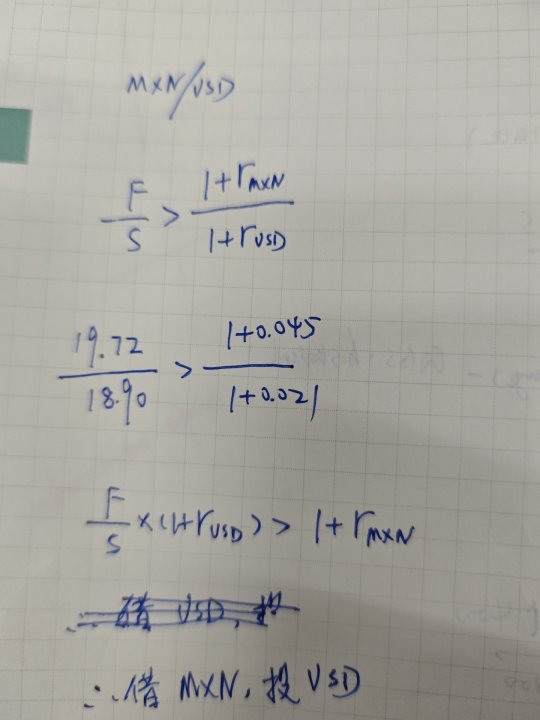 MXN/USD
F/S > (1+rMXN)/(1+rUSD)
19.72/18.90 > (1+0.045)/(1+0.021)
F/S×(1+rUSD)> 1+rMXN
∴借 USD,投
∴借 MXN,投 USD